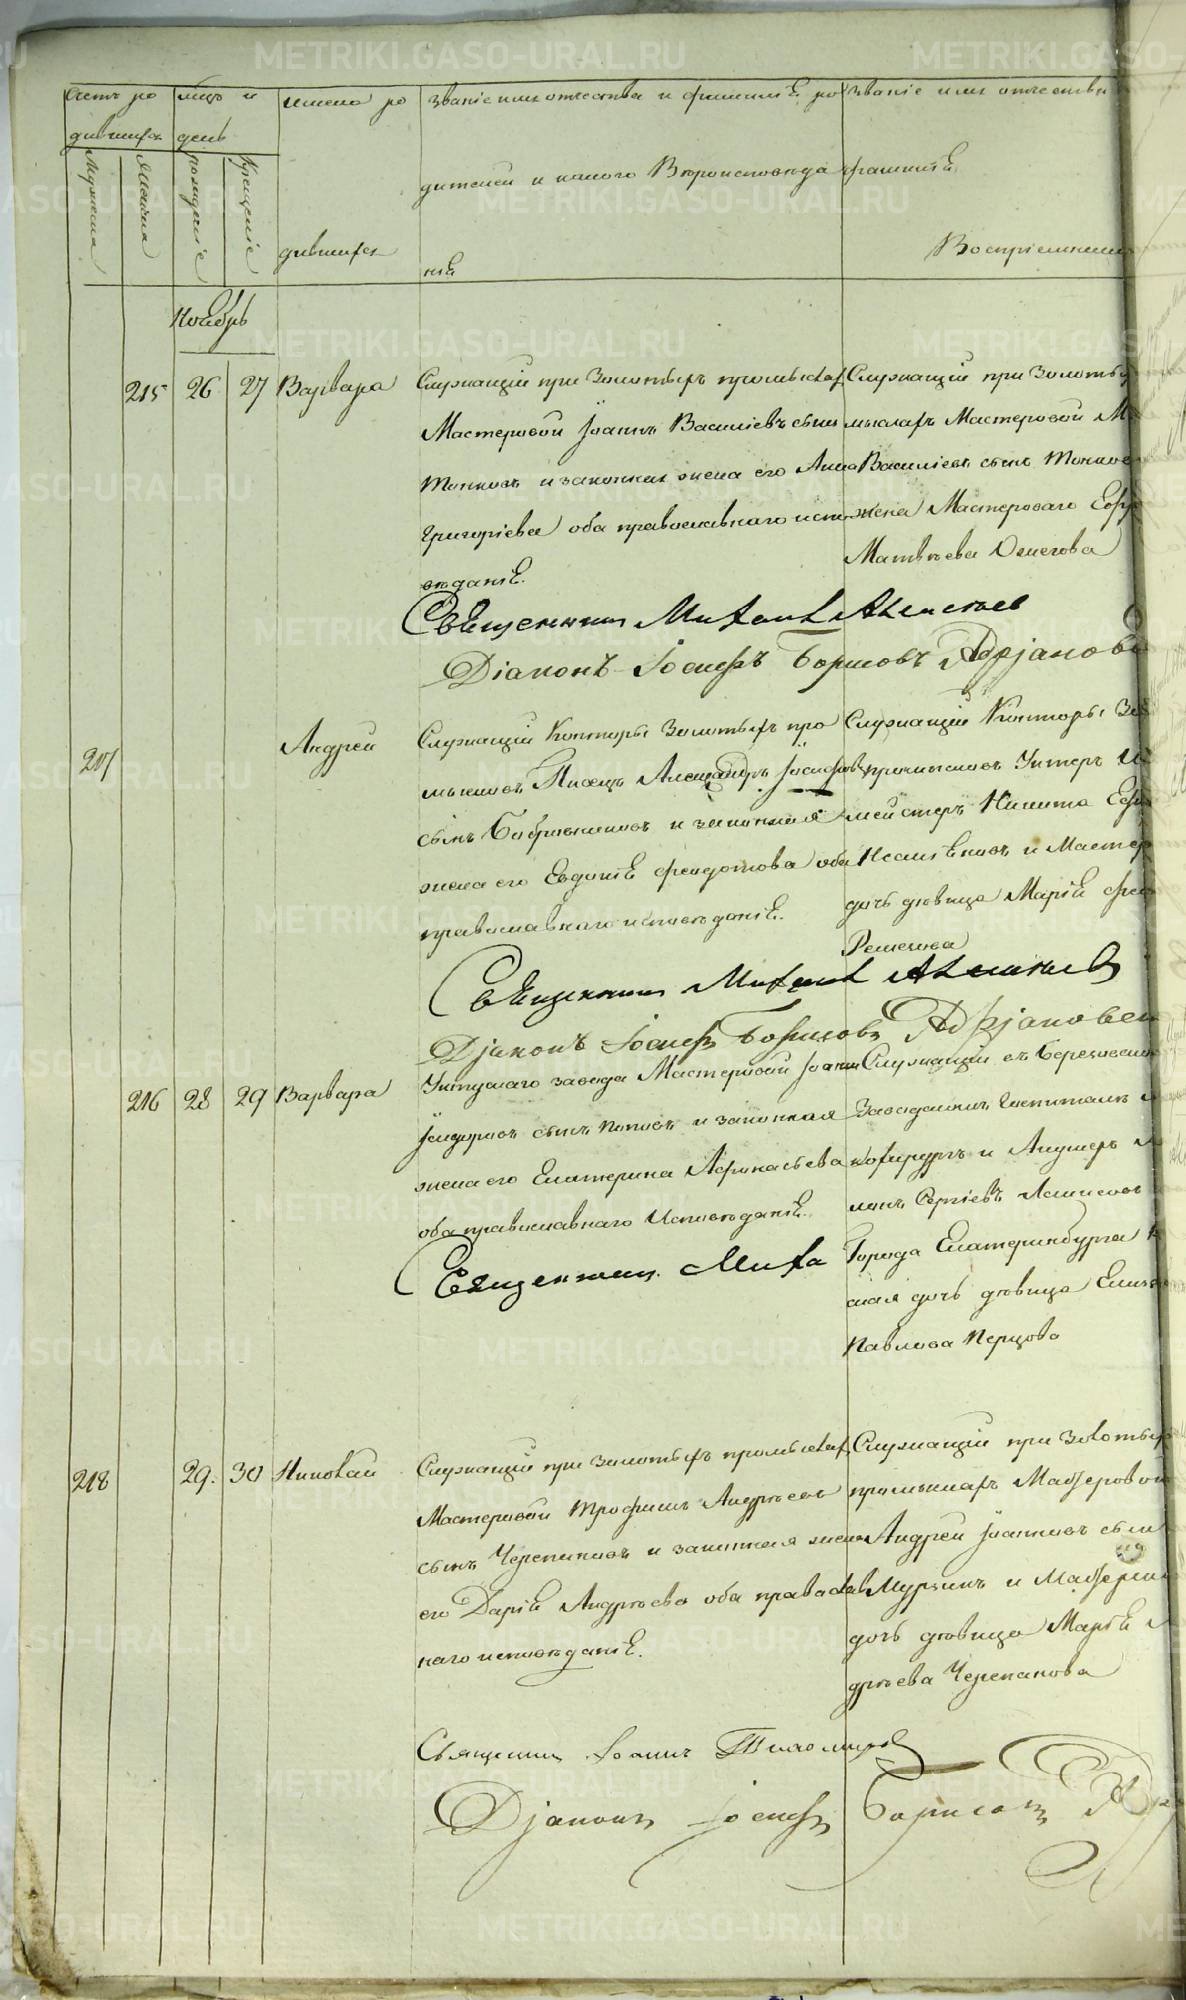 Счетъ ро
дившихся
Мужеска
Женска
мцъ и
день
рожденіе
Крещеніе
имена ро
дившихся
званіе имя отчества и фамиліѣ ро
дителей и какого Вѣроисповѣда
ніѣ
Званіе имя отчества
фамиліѣ
Воспріемников
Ноябрь
215 26 27 Варвара
Служащій при Золотыхъ промыслах
Мастеровой Іоаннъ Василіевъ сынъ
Токковъ и законная жена его Анна
Григоріева оба православнаго испо
вѣданіѣ.
Служащій при Золоты
мыслахъ Мастеровой М
Василіевъ сынъ Токков
жена Мастероваго Ефр
Матвѣева Ожегова
Священникъ Михаил Афанасьев
Діаконъ Іосифъ Борисовъ Адріанове
217 Андрей
Служащій Конторы Золотыхъ про
мысловъ Писецъ Александръ Іосифовъ
сынъ Бобровников и законная
жена его Евдокіѣ Феодотова оба
православнаго исповѣданіѣ.
Служащій Конторы Зол
промысловъ Унтеръ
мейстеръ Никита Ефи
и Мастер
дочь дѣвица Маріѣ Фео
Решетова
Священникъ Михаил Афанасьев
Діаконъ Іосифъ Борисовъ Адріановен
216 28 29 Варвара
Уктускаго завода Мастеровой Іоаннъ
Исидоровъ сынъ Поповъ и законная
жена его Екатерина Афонасьева
оба православнаго Исповѣданіѣ.
Служащій въ Березовском
Заводскомъ Госпиталѣ
кохирургъ и Акушеръ
Сергіевъ
Города Екатеринбурга
ская дочь дѣвица Елиза
Павлова Перцова
Священник Миха
218 29. 30 Николай
Служащій при Золотыхъ промыслах
Мастеровой Трофимъ Андрѣевъ
сынъ Черепановъ и законная жена
его Даріѣ Андрѣева оба православ
наго исповѣданіѣ.
Служащій при Золотых
промыслахъ Мастеровой
Андрей Іоанновъ сын
Мурзинъ и Мастерска
дочь дѣвица Маріѣ А
дрѣева Черепанова
Священник Іоаннъ Тихомиров
Діаконъ Іосифъ Борисовъ Адр
METRIKI.GASO-URAL.RU